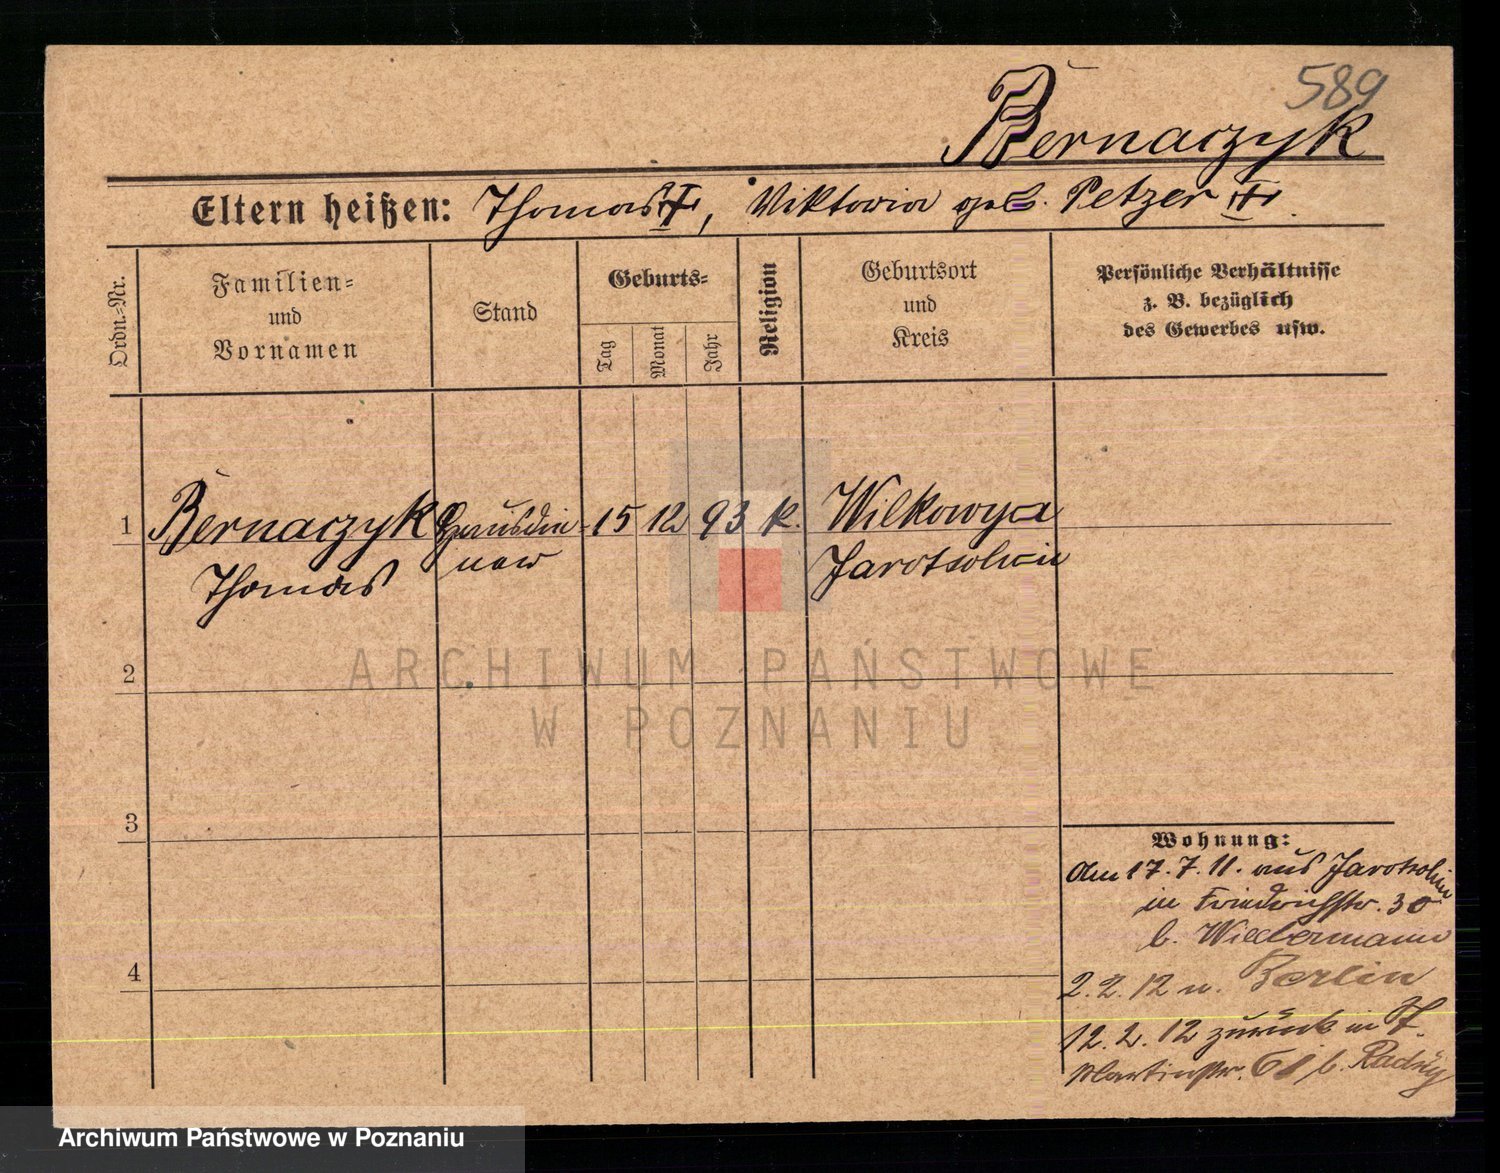 589
Bernaczyk
Eltern heißen: Thomas, Viktoria geb. Petzer
Ordn.-Nr.
Familien=
und
Vornamen
Stand
Geburts=
Tag
Monat
Jahr
Religion
Geburtsort
und
Kreis
Persönliche Verhältnisse
z. B. bezüglich
des Gewerbes usw.
1 Bernaczyk Hausdie- 15 12 93 k. Wilkowya
Thomas ner Jarotschin
2
3
4
Wohnung:
Am 17.7.11. aus Jarotschin
in Friedrichstr. 30
b. Wiedermann
2.2.12 n. Berlin
12.2.12 zurück in St.
Martinstr. 61, b.
ARCHIWUM PAŃSTWOWE
W POZNANIU
Archiwum Państwowe w Poznaniu